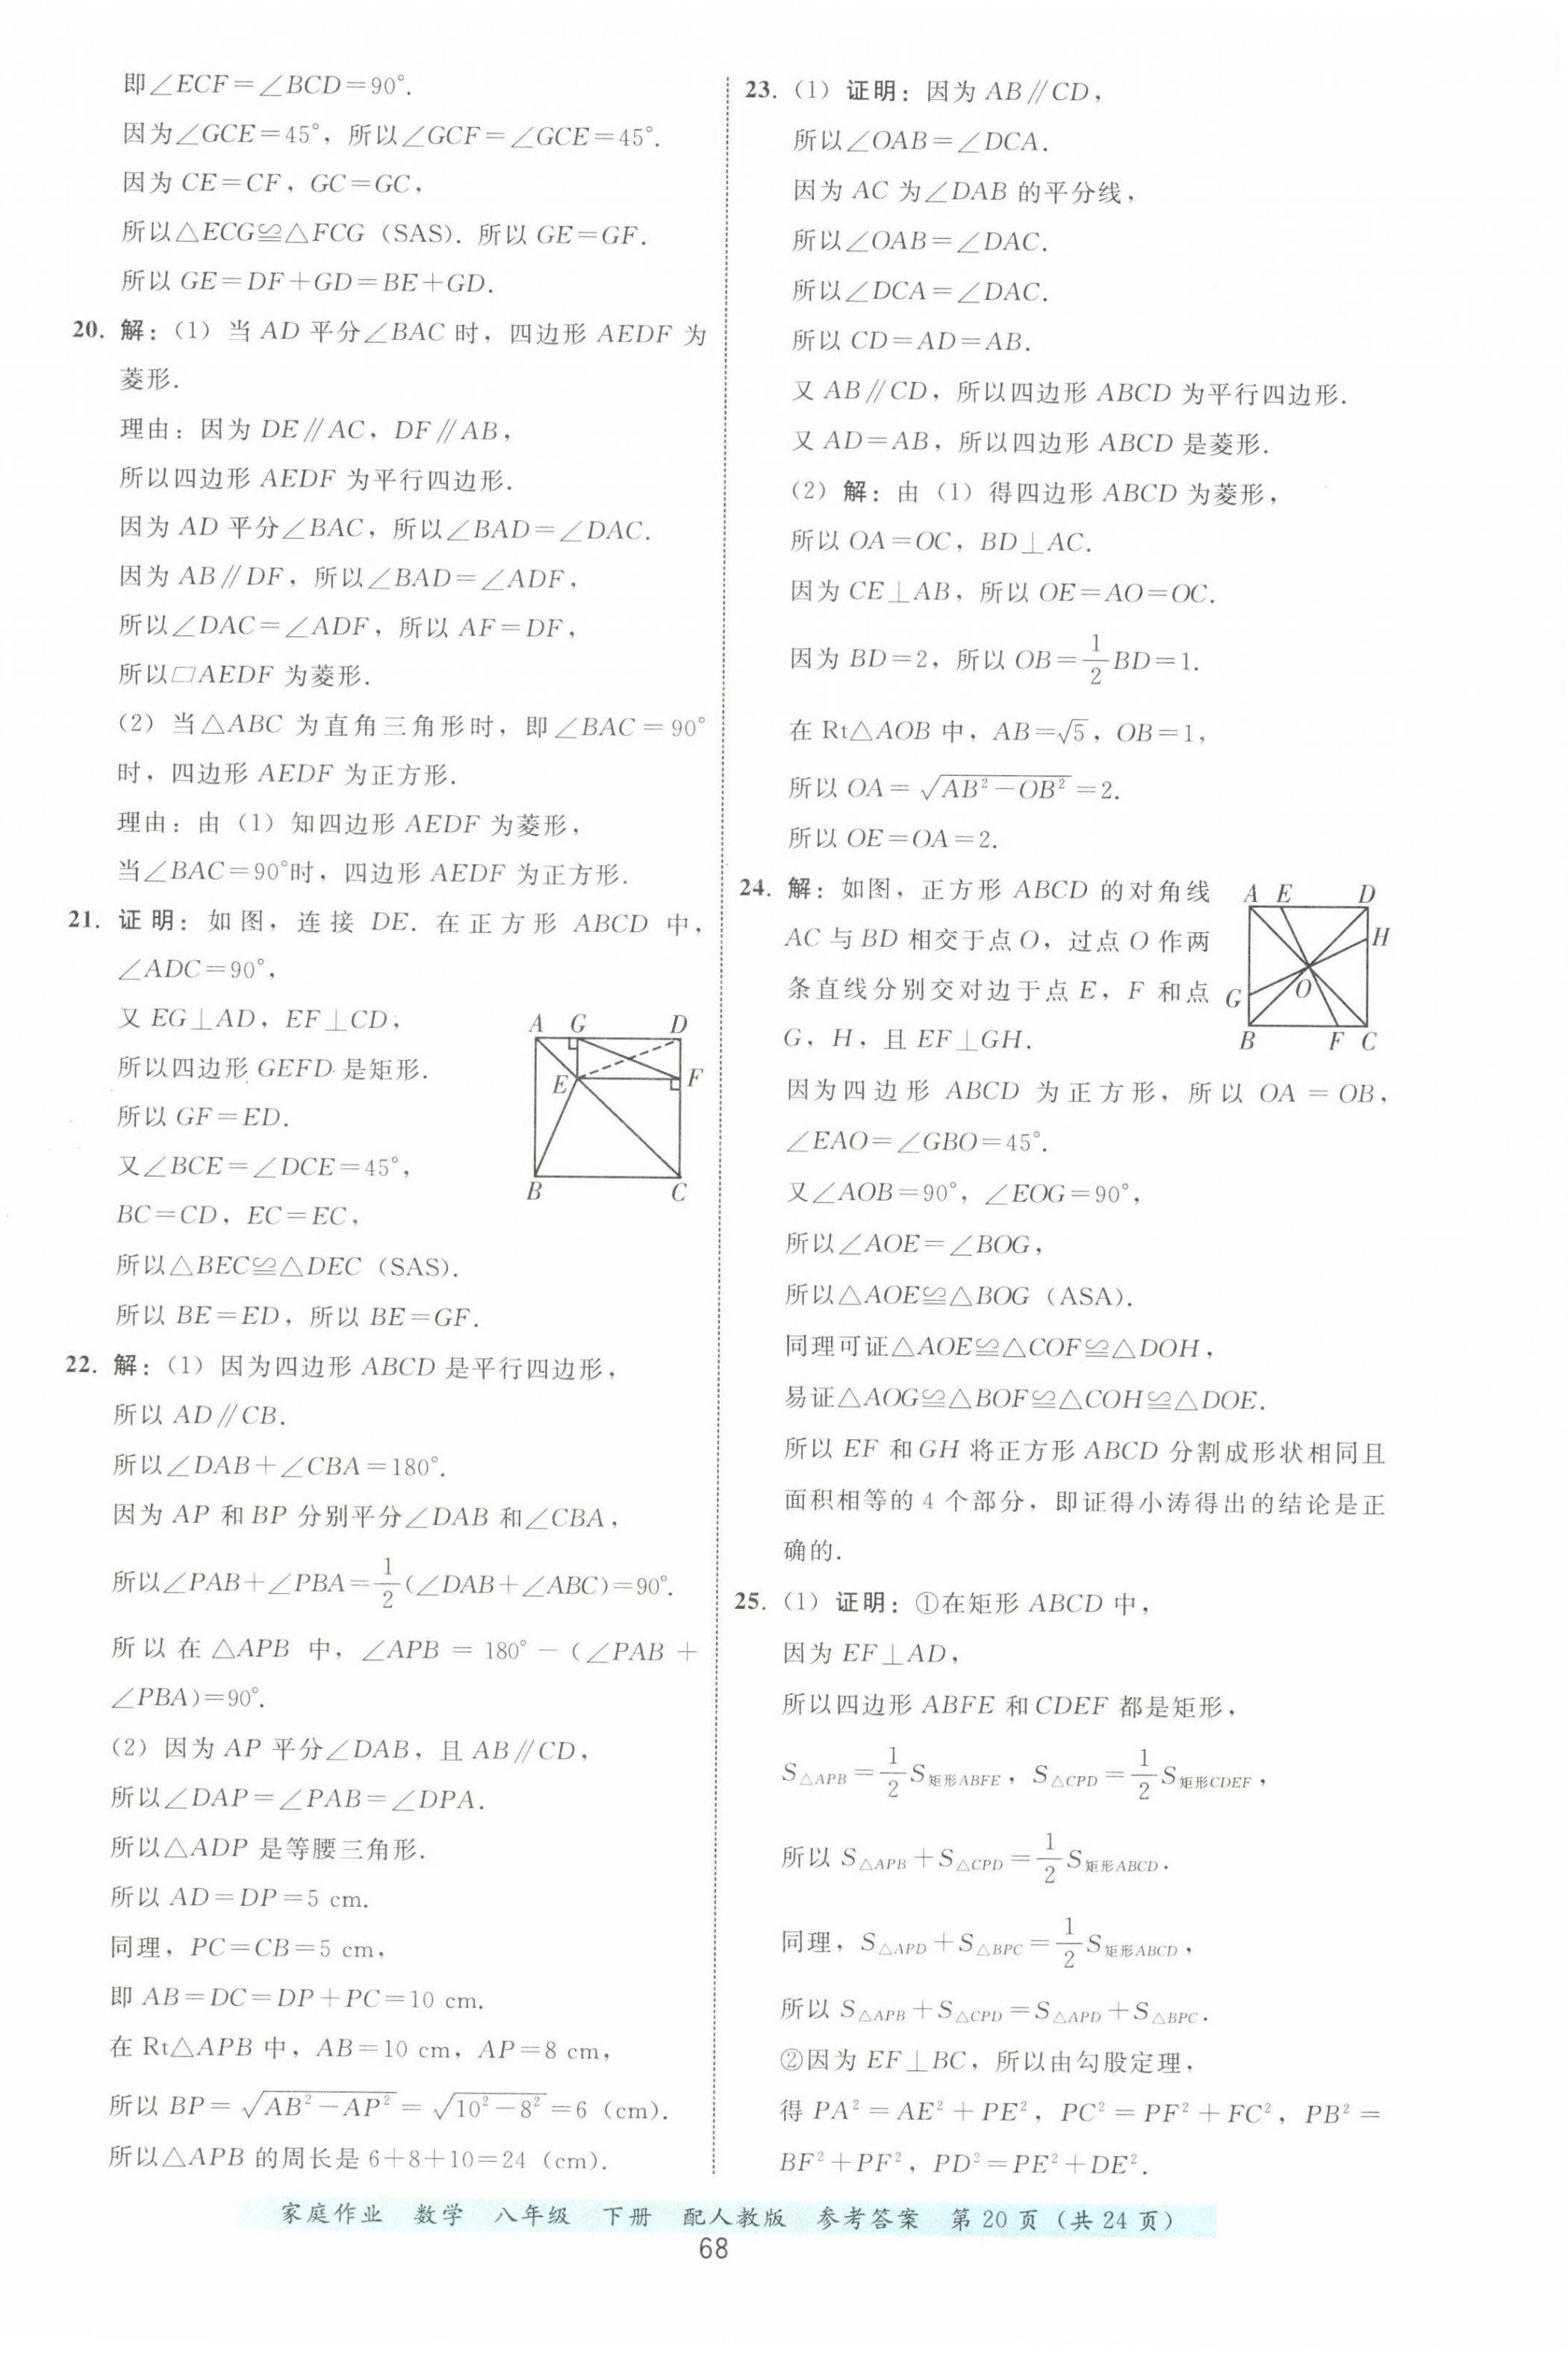 即∠ECF=∠BCD=90°.
因为∠GCE=45°，所以∠GCF=∠GCE=45°.
因为 CE=CF，GC=GC，
所以△ECG≌△FCG（SAS）. 所以 GE=GF.
所以 GE=DF+GD=BE+GD.
20. 解：（1）当 AD 平分∠BAC 时，四边形 AEDF 为
菱形.
理由：因为 DE∥AC，DF∥AB，
所以四边形 AEDF 为平行四边形.
因为 AD 平分∠BAC，所以∠BAD=∠DAC.
因为 AB∥DF，所以∠BAD=∠ADF，
所以∠DAC=∠ADF，所以 AF=DF，
所以▱AEDF 为菱形.
（2）当△ABC 为直角三角形时，即∠BAC=90°
时，四边形 AEDF 为正方形.
理由：由（1）知四边形 AEDF 为菱形，
当∠BAC=90°时，四边形 AEDF 为正方形.
21. 证明：如图，连接 DE. 在正方形 ABCD 中，
∠ADC=90°，
又 EG⊥AD，EF⊥CD，
所以四边形 GEFD 是矩形.
所以 GF=ED.
又∠BCE=∠DCE=45°，
BC=CD，EC=EC，
所以△BEC≌△DEC（SAS）.
所以 BE=ED，所以 BE=GF.
A G D
E F
B C
22. 解：（1）因为四边形 ABCD 是平行四边形，
所以 AD∥CB.
所以∠DAB+∠CBA=180°.
因为 AP 和 BP 分别平分∠DAB 和∠CBA，
所以∠PAB+∠PBA=1/2(∠DAB+∠ABC)=90°.
所以在△APB 中，∠APB=180°-(∠PAB+
∠PBA)=90°.
（2）因为 AP 平分∠DAB，且 AB∥CD，
所以∠DAP=∠PAB=∠DPA.
所以△ADP 是等腰三角形.
所以 AD=DP=5 cm.
同理，PC=CB=5 cm，
即 AB=DC=DP+PC=10 cm.
在 Rt△APB 中，AB=10 cm，AP=8 cm，
所以 BP=√(AB²-AP²)=√(10²-8²)=6（cm）.
所以△APB 的周长是 6+8+10=24（cm）.
23.（1）证明：因为 AB∥CD，
所以∠OAB=∠DCA.
因为 AC 为∠DAB 的平分线，
所以∠OAB=∠DAC.
所以∠DCA=∠DAC.
所以 CD=AD=AB.
又 AB∥CD，所以四边形 ABCD 为平行四边形.
又 AD=AB，所以四边形 ABCD 是菱形.
（2）解：由（1）得四边形 ABCD 为菱形，
所以 OA=OC，BD⊥AC.
因为 CE⊥AB，所以 OE=AO=OC.
因为 BD=2，所以 OB=1/2BD=1.
在 Rt△AOB 中，AB=√5，OB=1，
所以 OA=√(AB²-OB²)=2.
所以 OE=OA=2.
24. 解：如图，正方形 ABCD 的对角线
AC 与 BD 相交于点 O，过点 O 作两
条直线分别交对边于点 E，F 和点
G，H，且 EF⊥GH.
A E D
H
G O
B F C
因为四边形 ABCD 为正方形，所以 OA=OB，
∠EAO=∠GBO=45°.
又∠AOB=90°，∠EOG=90°，
所以∠AOE=∠BOG，
所以△AOE≌△BOG（ASA）.
同理可证△AOE≌△COF≌△DOH，
易证△AOG≌△BOF≌△COH≌△DOE.
所以 EF 和 GH 将正方形 ABCD 分割成形状相同且
面积相等的 4 个部分，即证得小涛得出的结论是正
确的.
25.（1）证明：①在矩形 ABCD 中，
因为 EF⊥AD，
所以四边形 ABFE 和 CDEF 都是矩形，
S△APB=1/2S矩形ABFE，S△CPD=1/2S矩形CDEF，
所以 S△APB+S△CPD=1/2S矩形ABCD.
同理，S△APD+S△BPC=1/2S矩形ABCD，
所以 S△APB+S△CPD=S△APD+S△BPC.
②因为 EF⊥BC，所以由勾股定理，
得 PA²=AE²+PE²，PC²=PF²+FC²，PB²=
BF²+PF²，PD²=PE²+DE².
家庭作业 数学 八年级 下册 配人教版 参考答案 第 20 页（共 24 页）
68